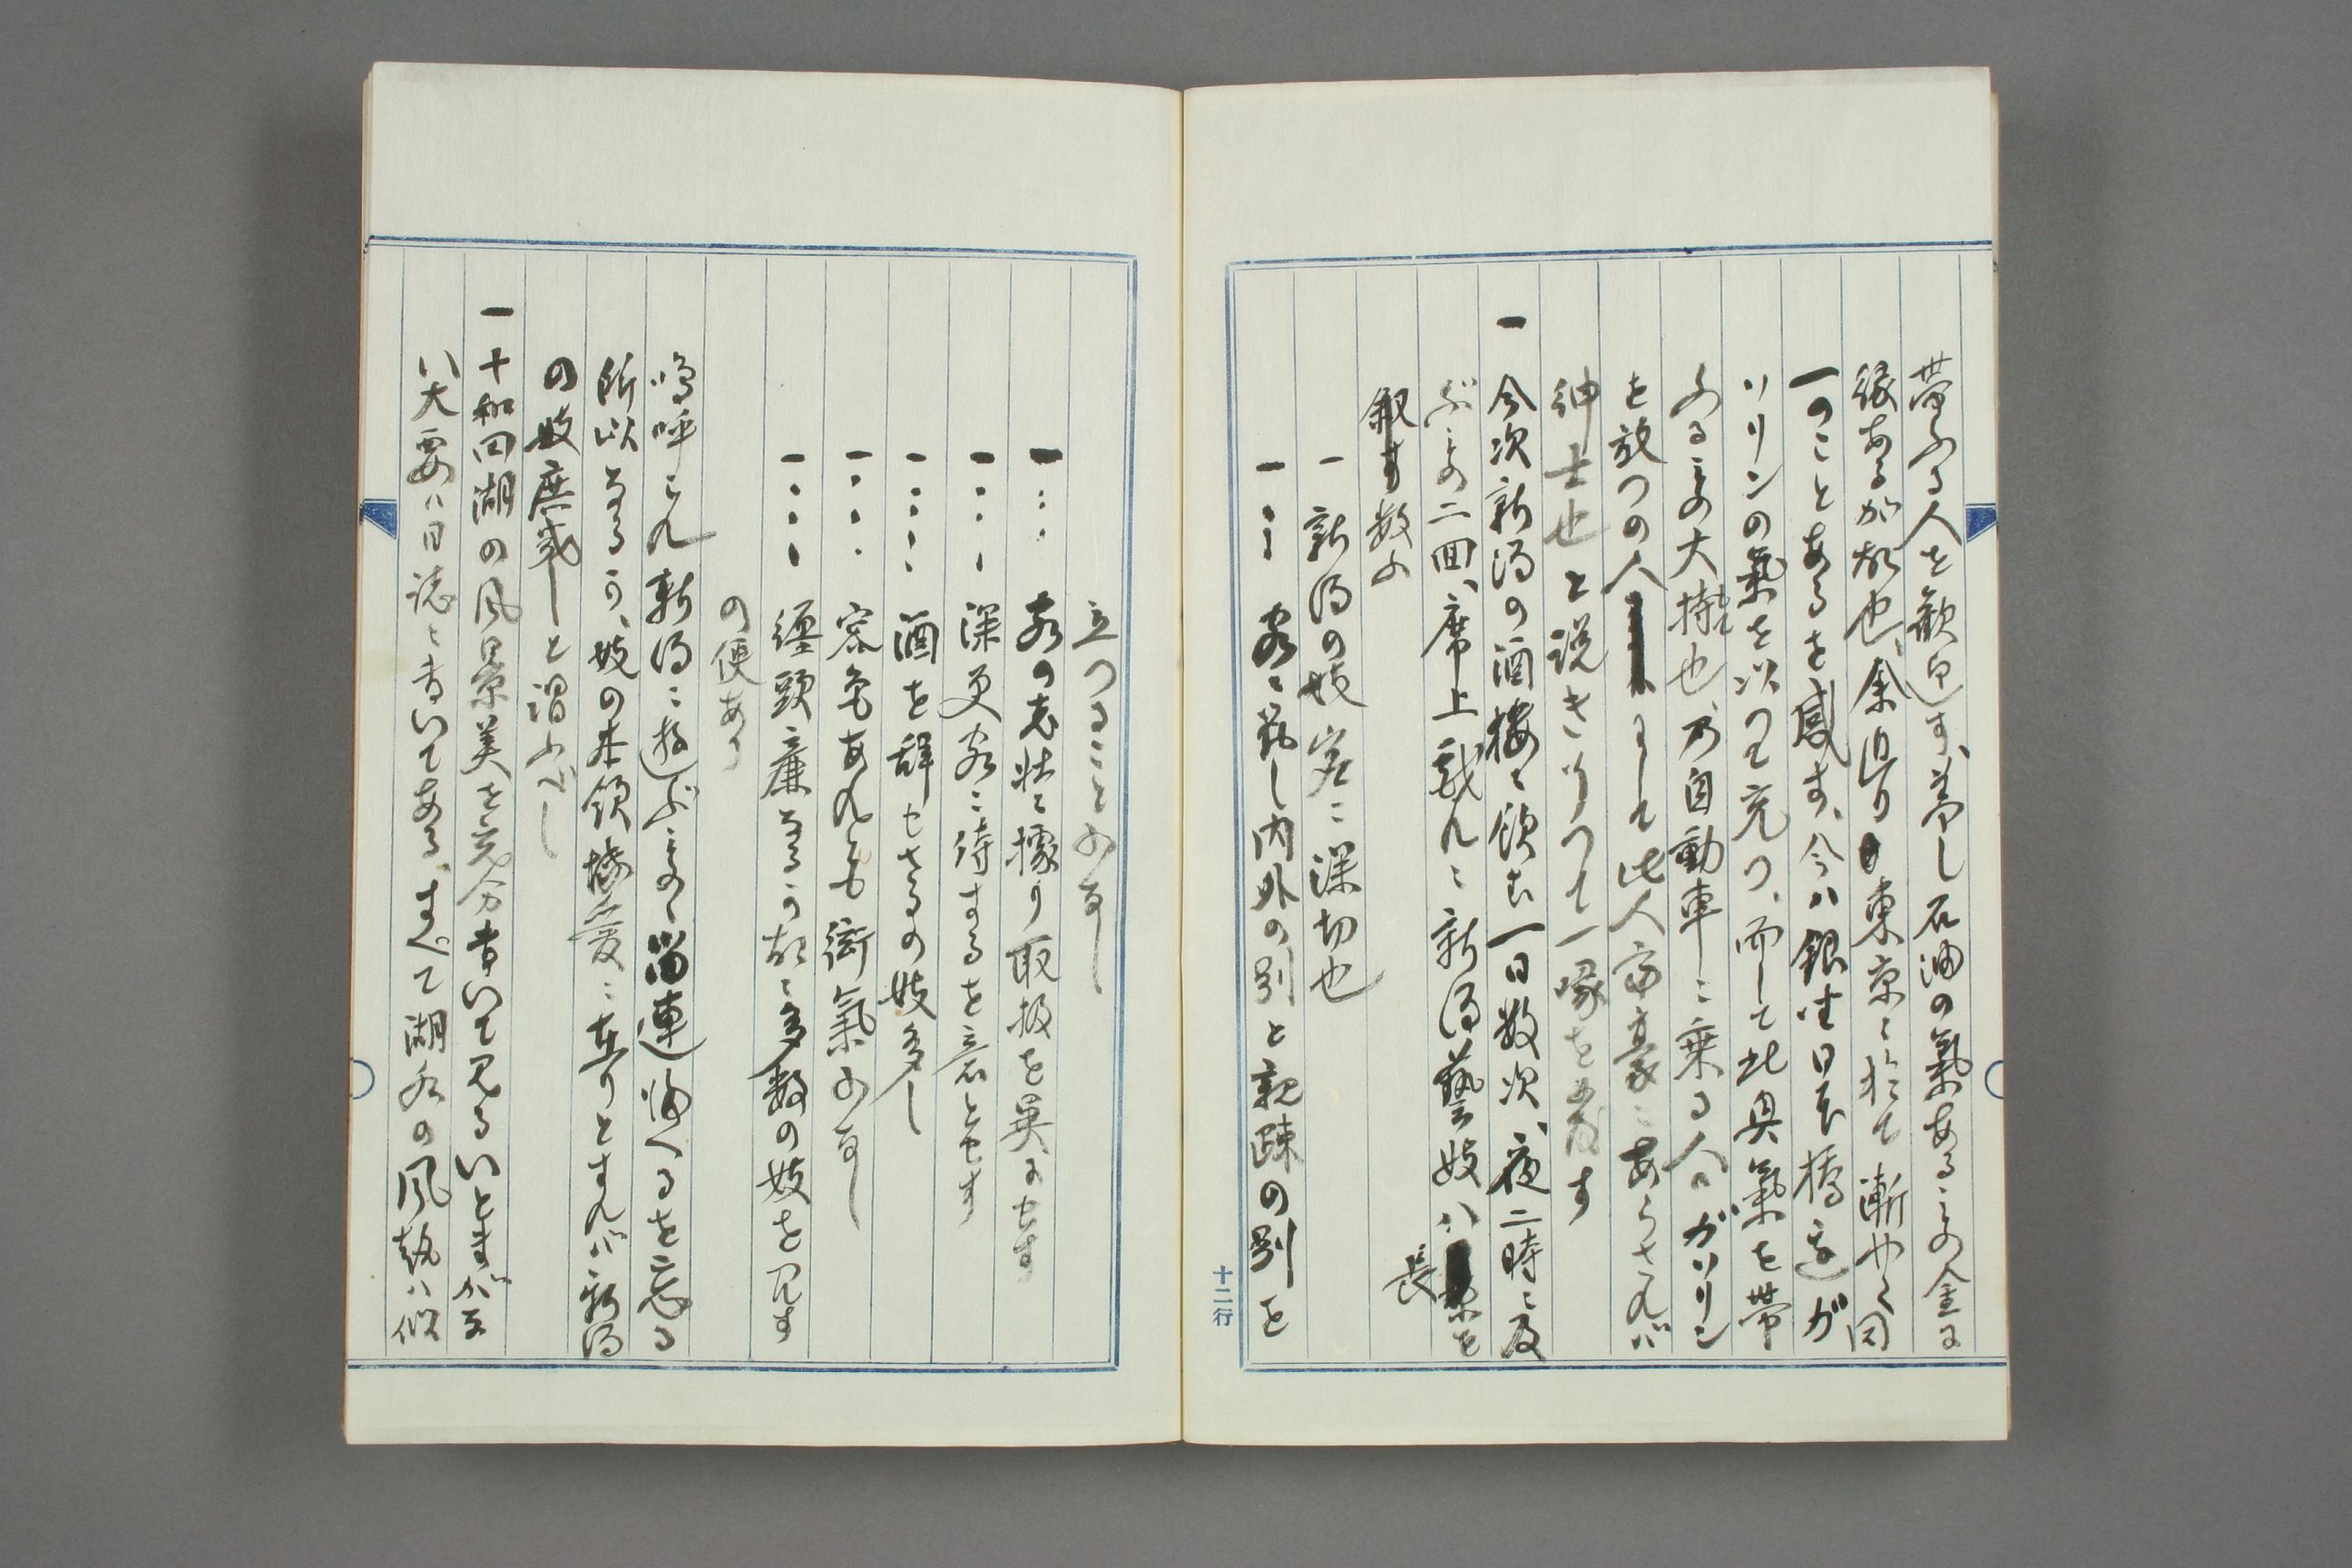 帯ふる人を歓迎す、蓋し石油の氣あるもの金に
縁あるが故也、余近日東京に於て漸やく同
一のことあるを感ず、今ハ銀坐日本橋辺ガ
ソリンの氣を以つて充つ、而して此臭氣を帯
ふるもの大持也、乃自動車ニ乗る人ガソリン
を放つの人にして此人富豪ニあらされバ
紳士也と説き了つて一噱を発す
一 今次新潟の酒楼に飲む一日数次、夜二時ニ及
ぶもの二回、席上戯れニ新潟藝妓ハ長
叙す数ふ
一 新潟の妓客ニ深切也
一 〻〻客に対し内外の別と親疎の別を
十二行
立つることふなし
一 〻〻 客の老壮に據り取扱を異にせす
一 〻〻〻 深更客に侍するを意とせす
一 〻〻〻 酒を辞せさるの妓多し
一 〻〻〻 容色あれとも衒氣ふなし
一 〻〻〻 纏頭廉なるか故に多数の妓を見す
の便あり
嗚呼これ新潟ニ遊ぶもの留連帰へるを忘るゝ
所以なるか、妓の本領博愛ニ在りとすれバ新潟
の妓庶幾しと謂ふべし
一 十和田湖の風景美を充分書いて見るいとまがな
い大要ハ日誌に書いてある、すべて湖水の風趣ハ似